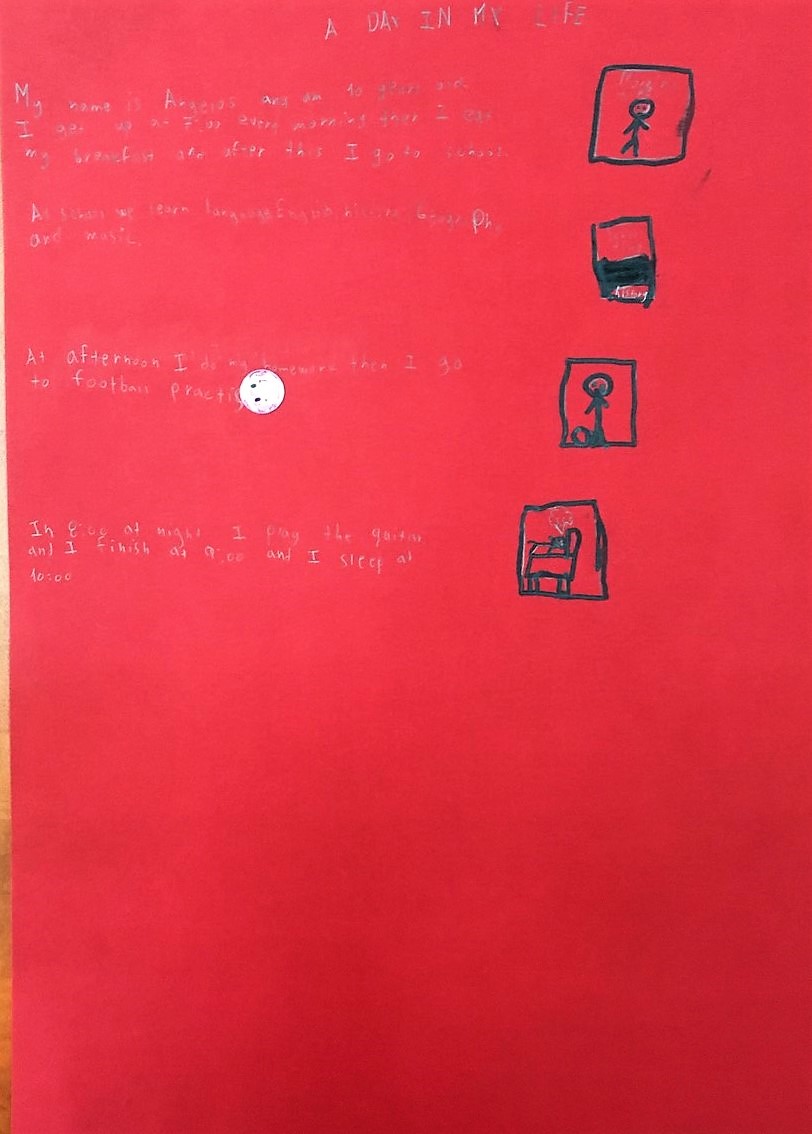 A DAY IN MY LIFE
My name is Angelos and am 10 years old
I get up at 7:00 every morning then I eat
my breakfast and after this I go to school.
At school we learn language English, history
and music.
At afternoon I do my homework then I go
to football
In 8:00 at night I play the guitar
and I finish at 9:00 and I sleep at
10:00
history